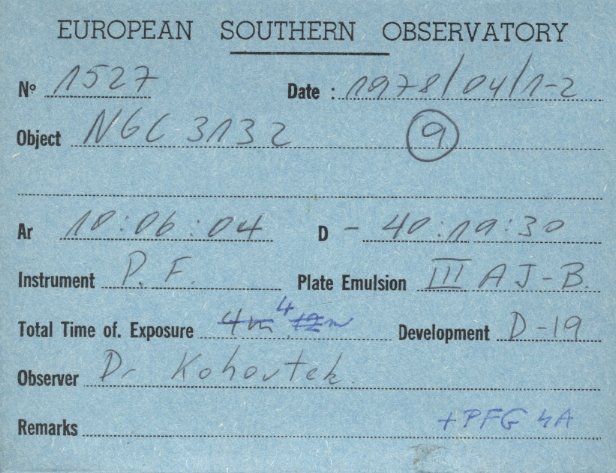 EUROPEAN SOUTHERN OBSERVATORY
Nº 1527 Date : 1978/04/1-2
Object NGC 3132 9
Ar 10:06:04 D - 40:19:30
Instrument P.F. Plate Emulsion III A J-B
Total Time of. Exposure 4m 4 12m Development D-19
Observer Dr Kohoutek
Remarks +PFG 4A